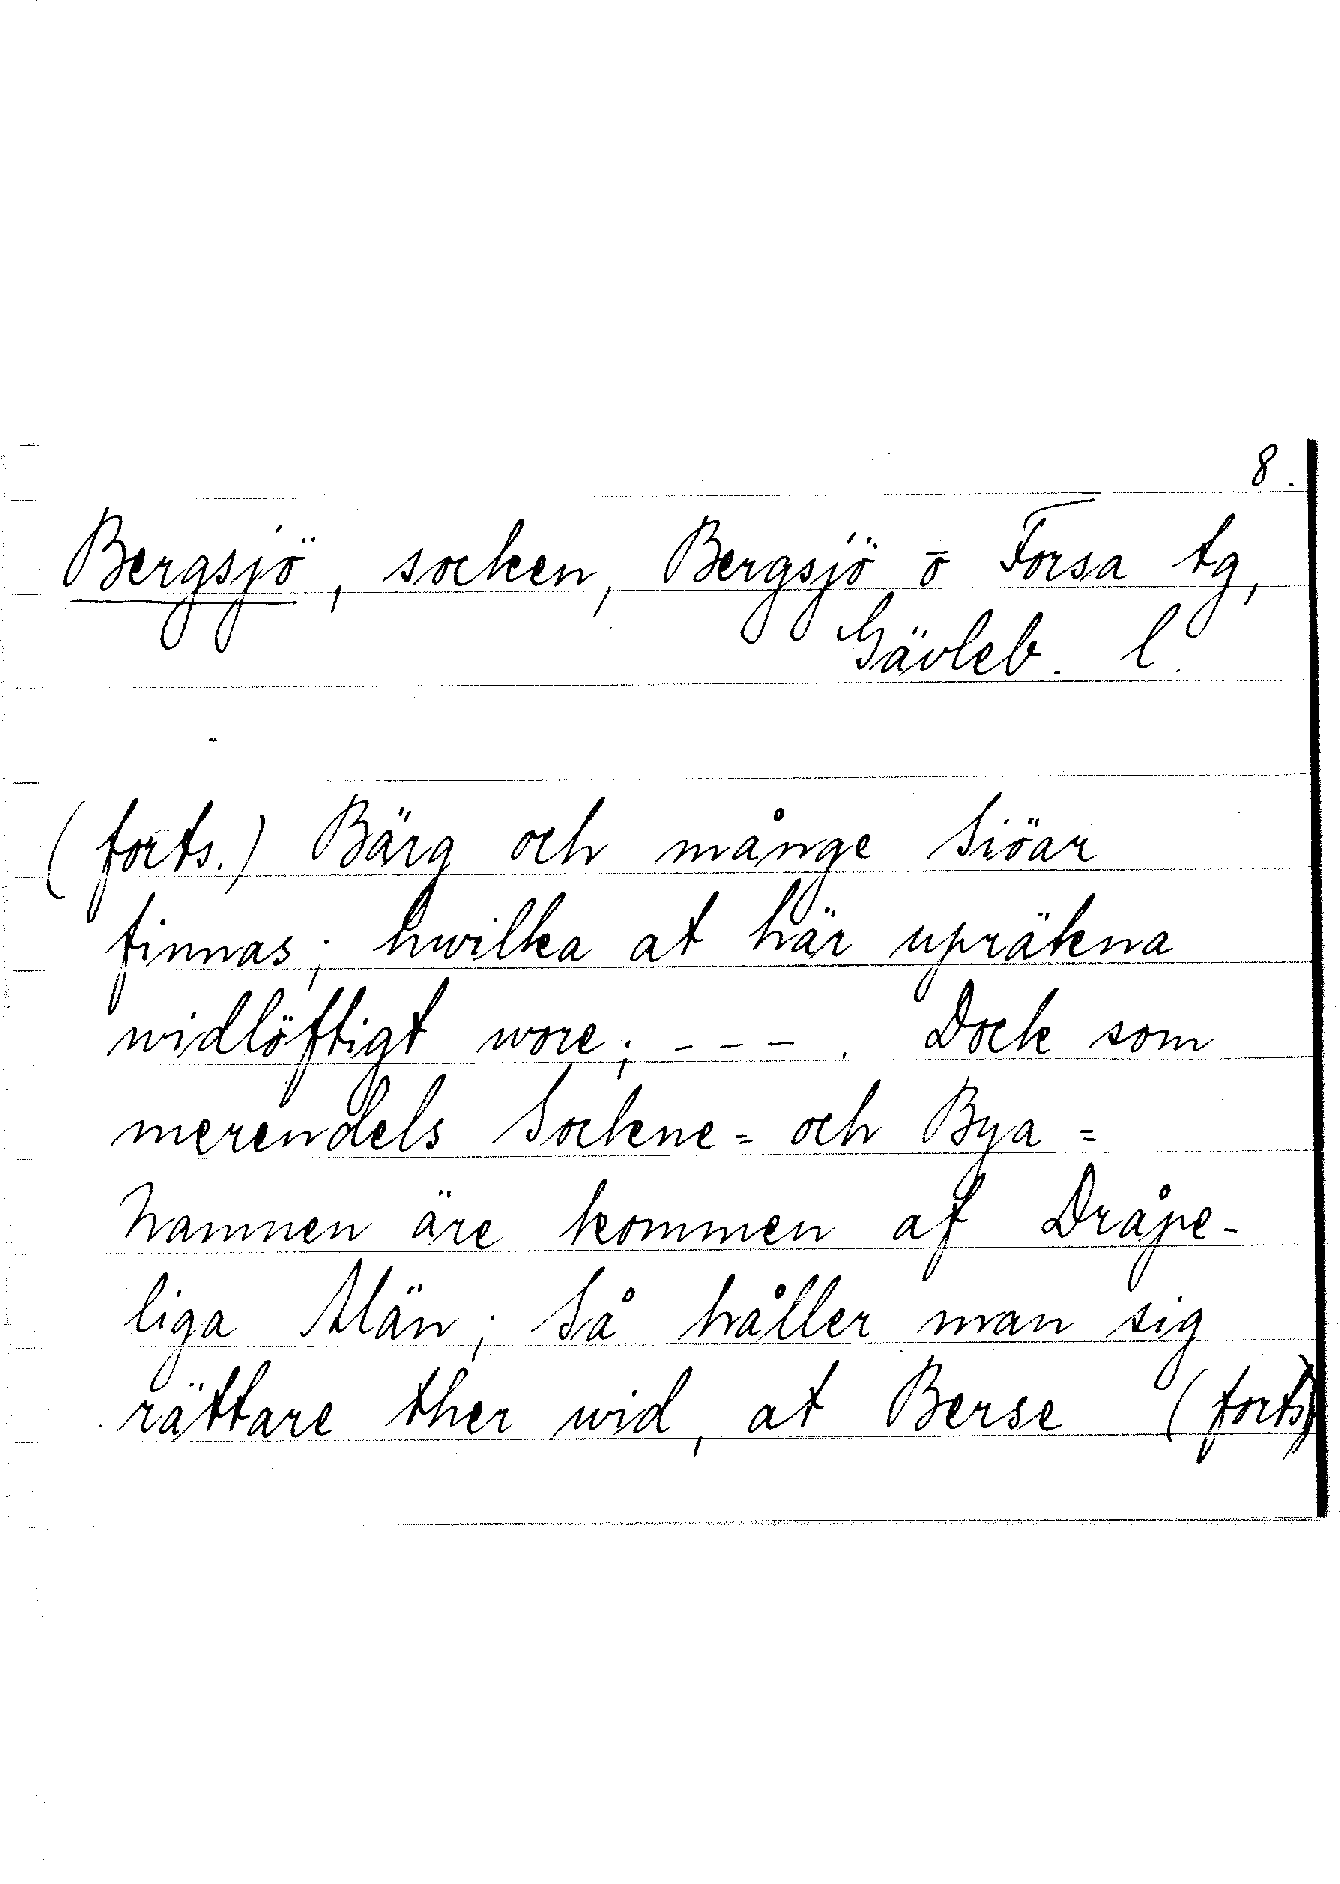 8.
Bergsjö, socken, Bergsjö o Forsa tg,
Gävleb. l.
(forts.) Bärg och månge Siöar
finnas; hwilka at här upräkna
widlöftigt wore; - - - . Dock som
merendels Sockne= och Bya=
Namnen äre kommen af Dråpe-
liga Män; Så håller man sig
rättare ther wid, at Berse (forts)